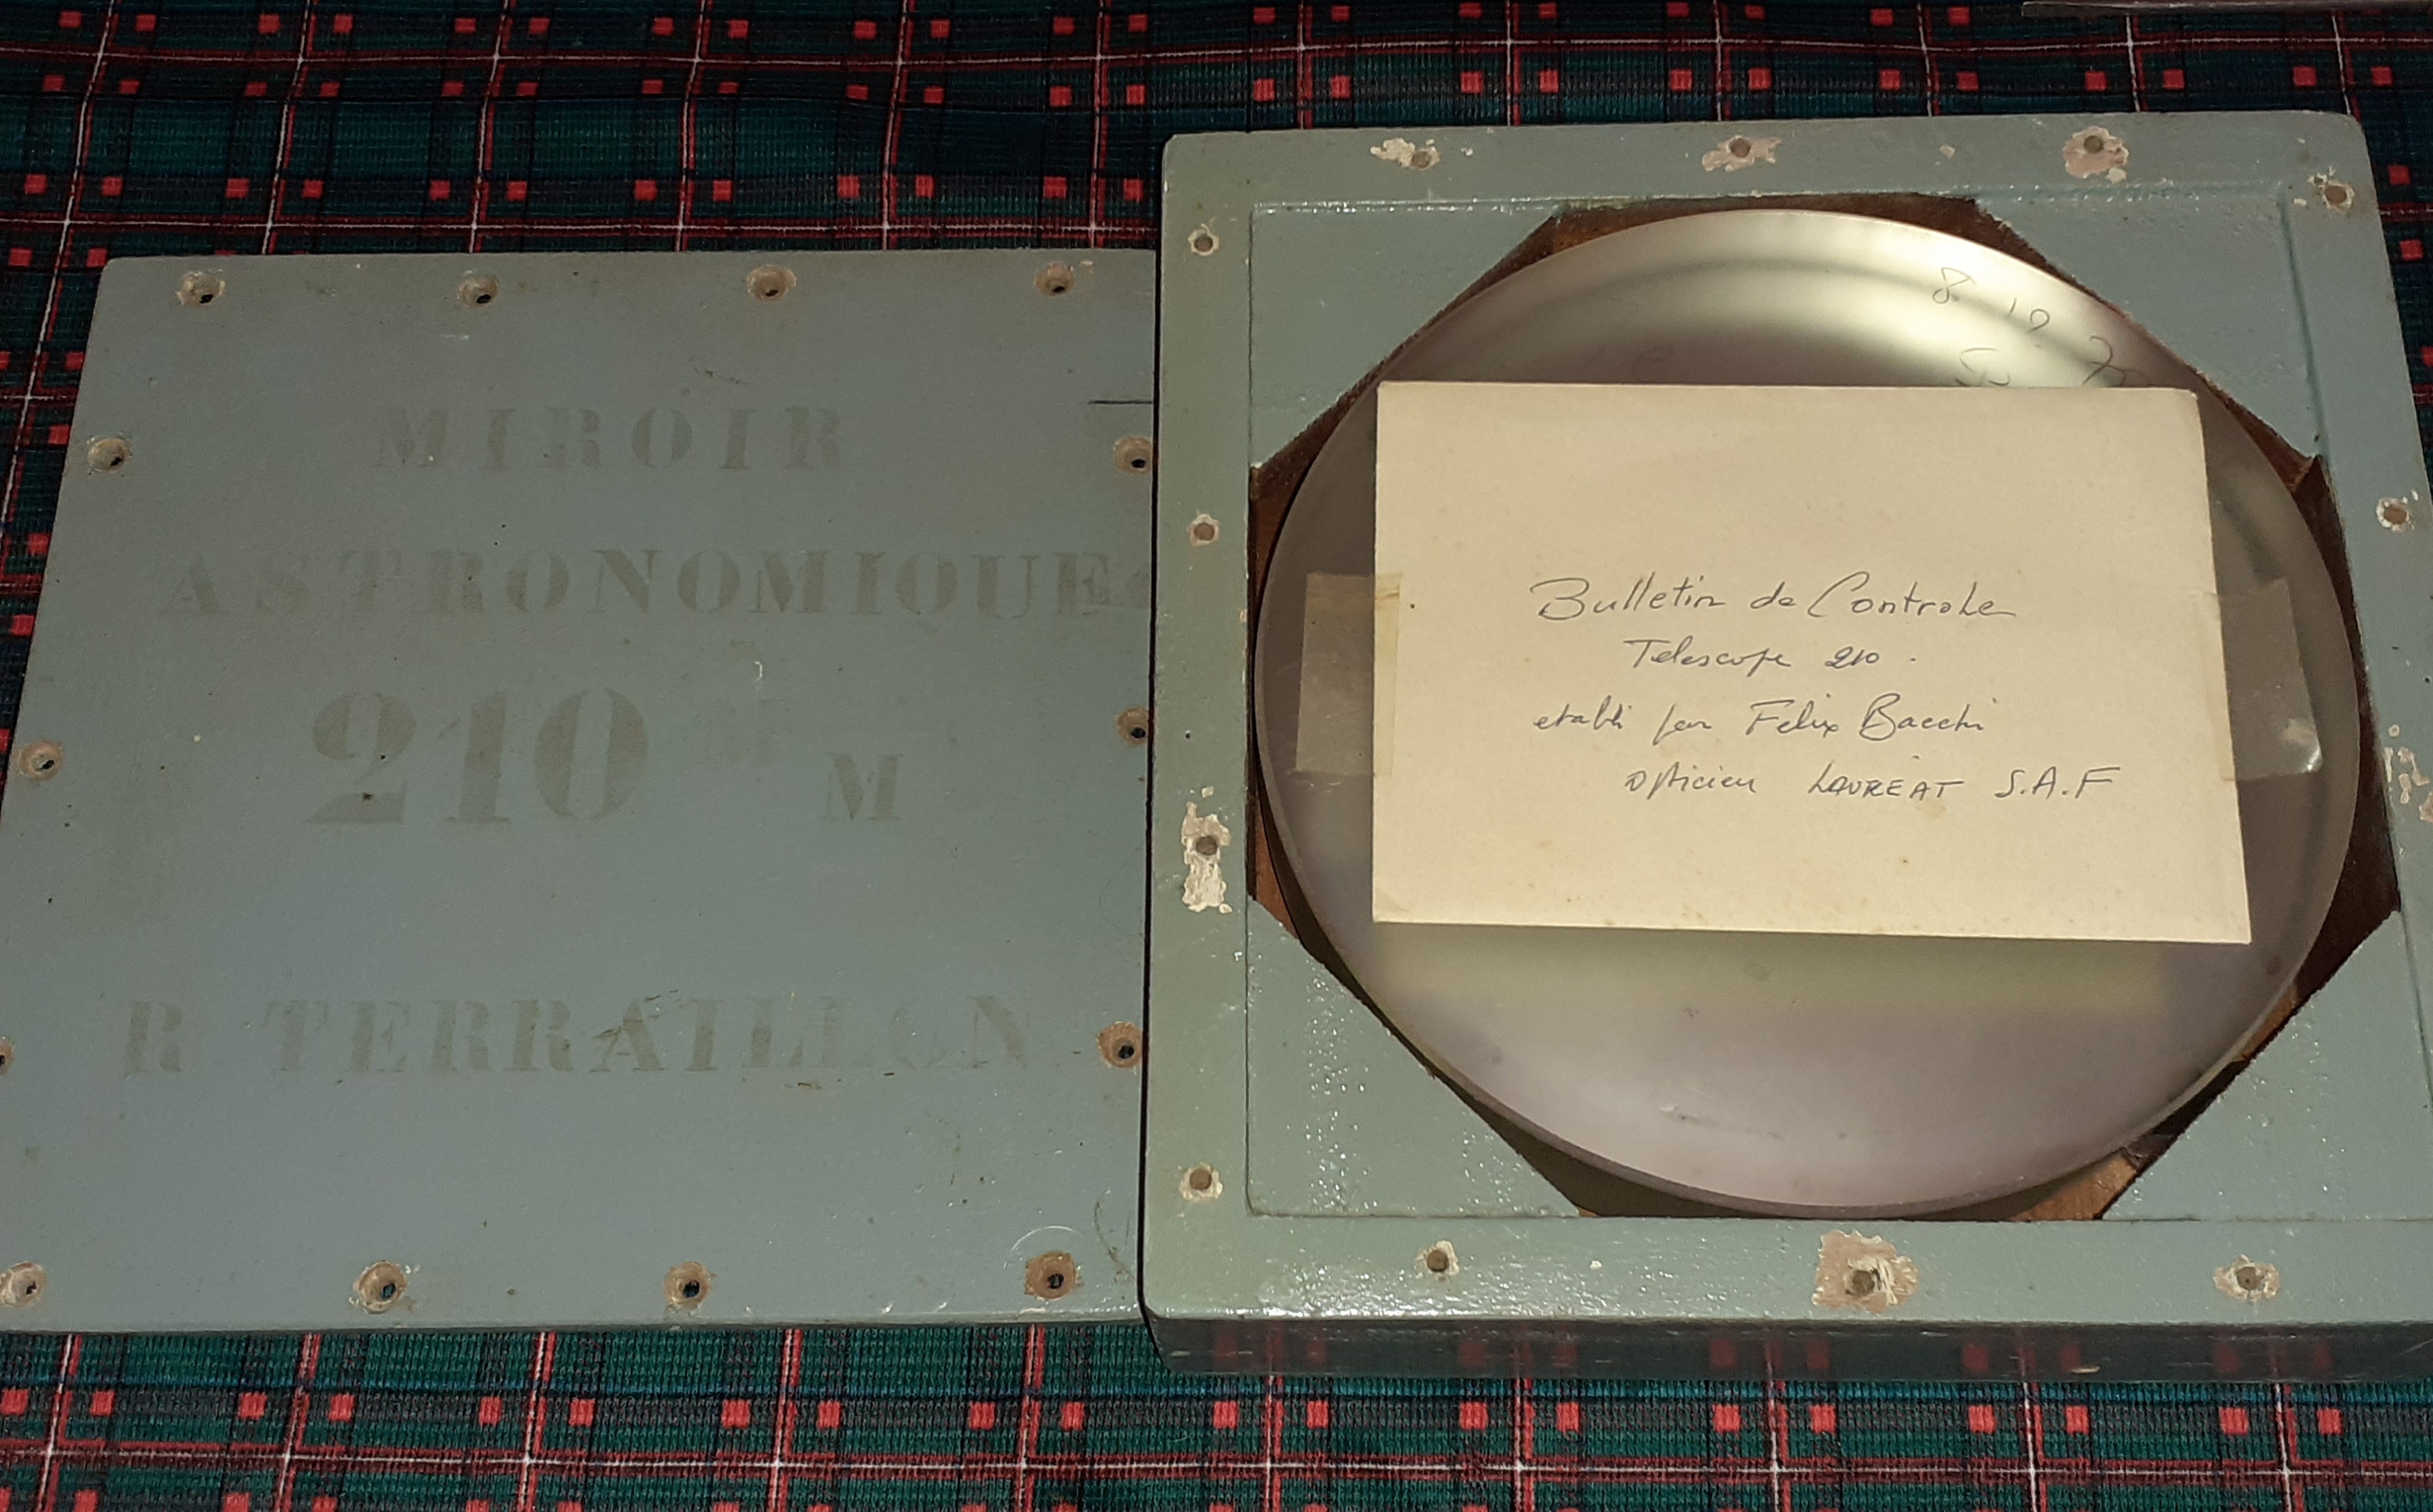 MIROIR
ASTRONOMIQUE
210 M
R TERRAILLON
8 12
Bulletin de Controle
Telescope 210.
etabli par Felix Bacchi
opticien LAUREAT S.A.F